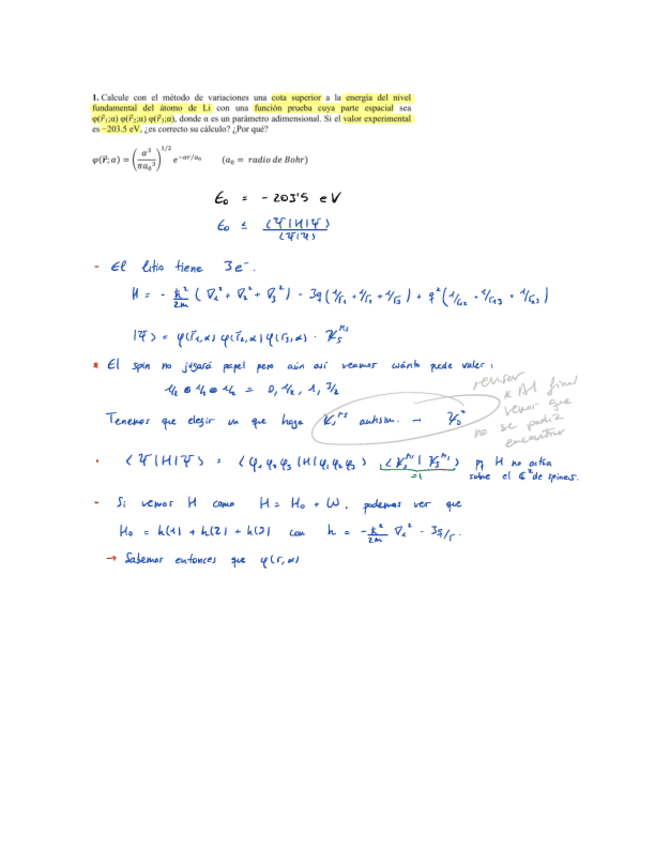 1. Calcule con el método de variaciones una cota superior a la energía del nivel
fundamental del átomo de Li con una función prueba cuya parte espacial sea
φ(r⃗₁;α) φ(r⃗₂;α) φ(r⃗₃;α), donde α es un parámetro adimensional. Si el valor experimental
es −203.5 eV, ¿es correcto su cálculo? ¿Por qué?
φ(r⃗; α) = (α³/πa₀³)^1/2 e^−αr/a₀ (a₀ = radio de Bohr)
E₀ = - 203'5 eV
E₀ ≤ ⟨Ψ|H|Ψ⟩ / ⟨Ψ|Ψ⟩
- El litio tiene 3e⁻.
H = - ℏ²/2m (∇₁² + ∇₂² + ∇₃²) - 3q (1/r₁ + 1/r₂ + 1/r₃) + q² (1/r₁₂ + 1/r₁₃ + 1/r₂₃)
|Ψ⟩ = φ(r₁,α) φ(r₂,α) φ(r₃,α) ·
* El spin no jugará papel pero aún así veamos cuánto puede valer:
1/2 ⊗ 1/2 ⊗ 1/2 = 0, 1/2, 1, 3/2
revisar
* Al final
venor que
no se podía
encontrar
Tenemos que elegir un que haga antisim. →
· ⟨Ψ|H|Ψ⟩ = ⟨φ₁ φ₂ φ₃ |H| φ₁ φ₂ φ₃⟩ =1 pq H no actúa
sobre el ℂ² de spines.
- Si vemos H como H = H₀ + W, podemos ver que
H₀ = h(1) + h(2) + h(3) con h = -ℏ²/2m ∇ᵢ² - 3q/r.
→ Sabemos entonces que φ(r,α)